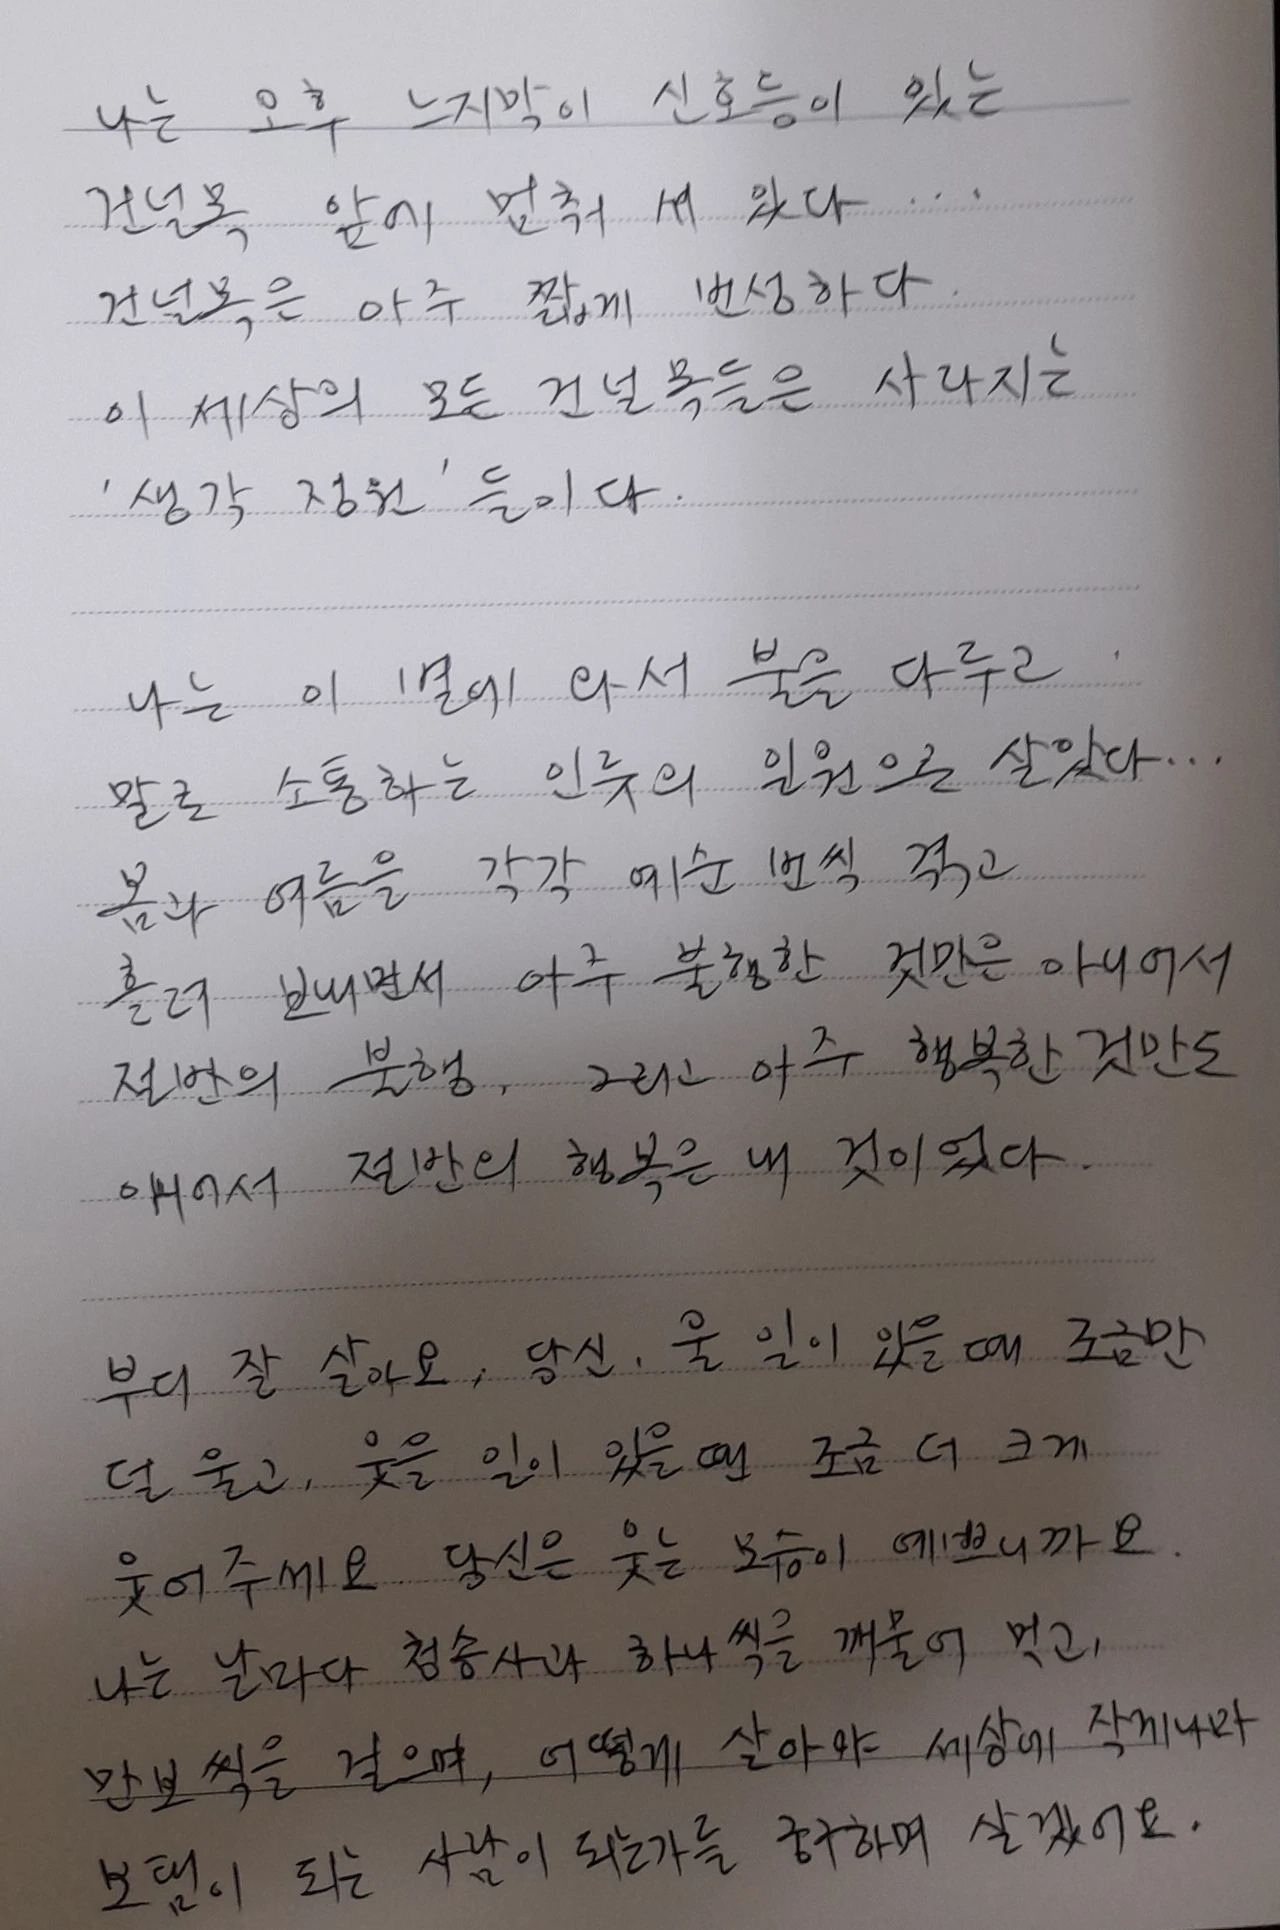 나는 오후 느지막이 신호등이 있는
건널목 앞에 멈춰 서 있다...
건널목은 아주 짧게 번성하다.
이 세상의 모든 건널목들은 사라지는
'생각 정원'들이다.
나는 이 별에 와서 불을 다루고
말로 소통하는 인류의 일원으로 살았다...
봄과 여름을 각각 예순 번씩 겪고
흘려 보내면서 아주 불행한 것만은 아니어서
절반의 불행, 그리고 아주 행복한 것만도
아니어서 절반의 행복은 내 것이었다.
부디 잘 살아요, 당신. 울 일이 있을 때 조금만
덜 울고, 웃을 일이 있을 땐 조금 더 크게
웃어주세요. 당신은 웃는 모습이 예쁘니까요.
나는 날마다 청송사과 하나씩을 깨물어 먹고,
만보씩을 걸으며, 어떻게 살아야 세상에 작게나마
보탬이 되는 사람이 되는가를 궁구하며 살겠어요.